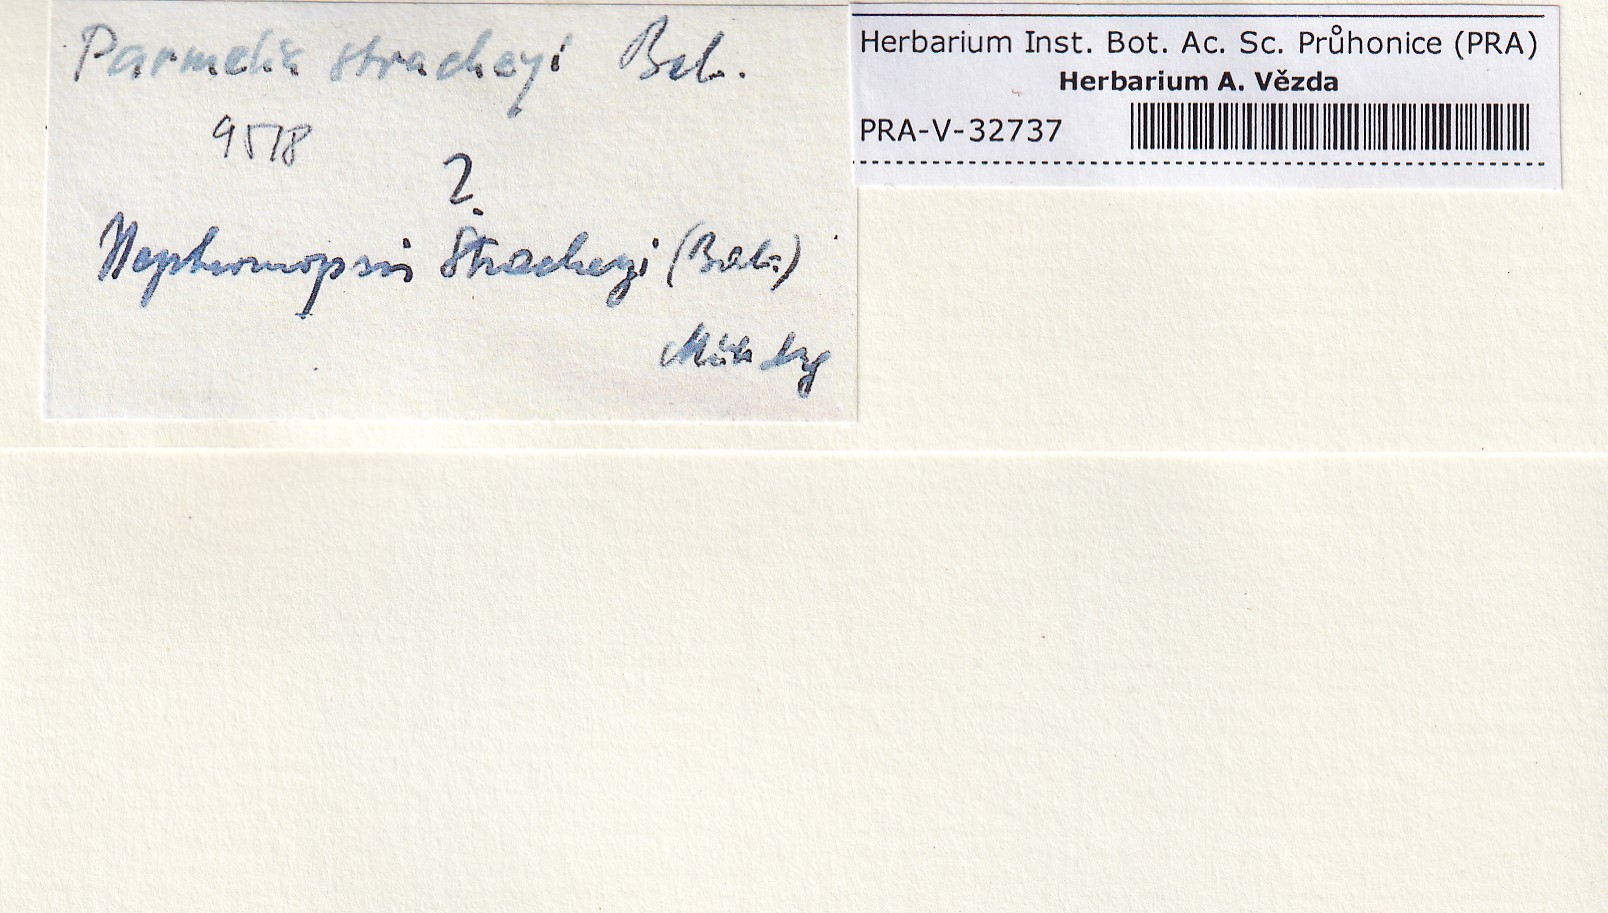 Parmelia stracheyi Bab.
9578
?
Nephromopsis Stracheyi (Bab.)
Müll Arg
Herbarium Inst. Bot. Ac. Sc. Průhonice (PRA)
Herbarium A. Vězda
PRA-V-32737